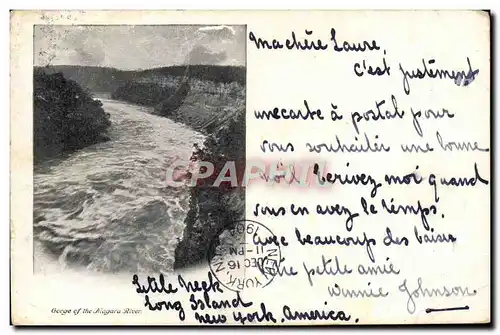 Ma chère Laure,
c'est justèment
une carte à postal pour
vous souhaitèr une bonne
Noël Écrivèz moi quand
vous en avez le temps.
avec beaucoups des baisèr
une petite amie
Winnie Johnson
Little Neck
Long Island
New York, America.
NEW YORK, N.Y.
DEC 16
11-PM
190
Gorge of the Niagara River.
CPARAMA